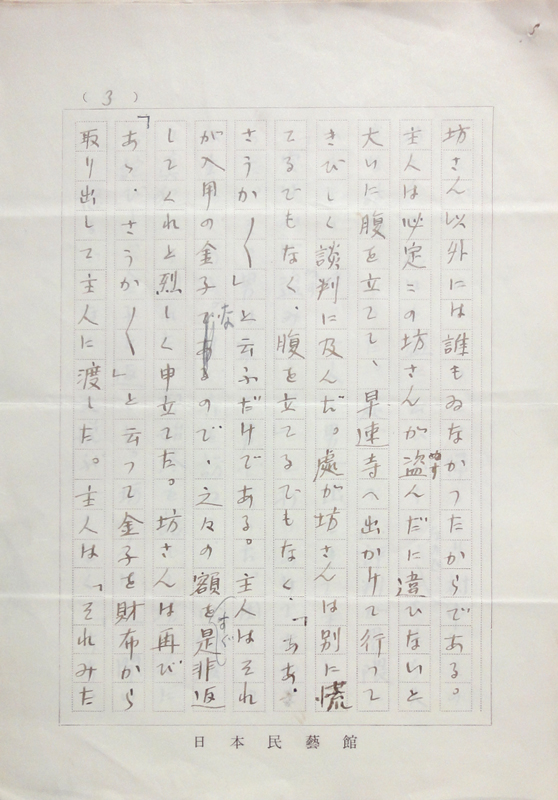 (3)
坊さん以外には誰もゐなかつたからである。
主人は必定この坊さんが盗んだに違ひないと
ぬす
大いに腹を立てて、早速寺へ出かけて行つて
きびしく談判に及んだ。處が坊さんは別に慌
てるでもなく、腹を立てるでもなく、「あゝ、
さうか〳〵」と云ふだけである。主人はそれ
が入用の金子なので、之々の額を是非返
すぐ
してくれと烈しく申立てた。坊さんは再び
「あゝ、さうか〳〵」と云つて金子を財布から
取り出して主人に渡した。主人は「それみた
日本民藝館